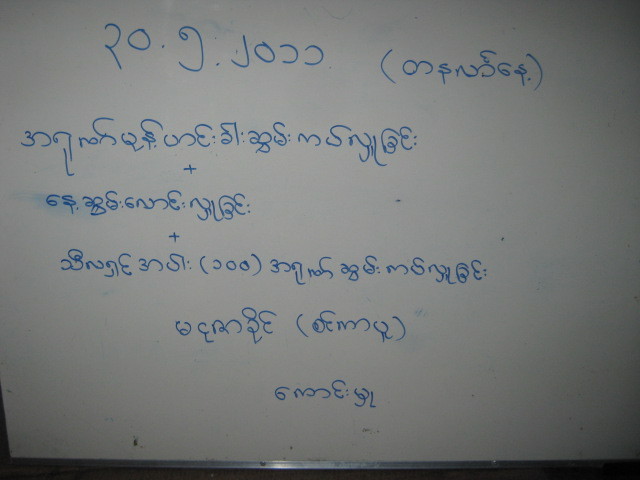 ၃၀.၅.၂၀၁၁ (တနင်္လာနေ့)
အရုဏ်မုန့်ဟင်းခါးဆွမ်းကပ်လှူခြင်း
+
နေ့ဆွမ်းလောင်းလှူခြင်း
+
သီလရှင်အပါး (၁၀၀) အရုဏ်ဆွမ်းကပ်လှူခြင်း
(စင်ကာပူ)
ကောင်းမှု